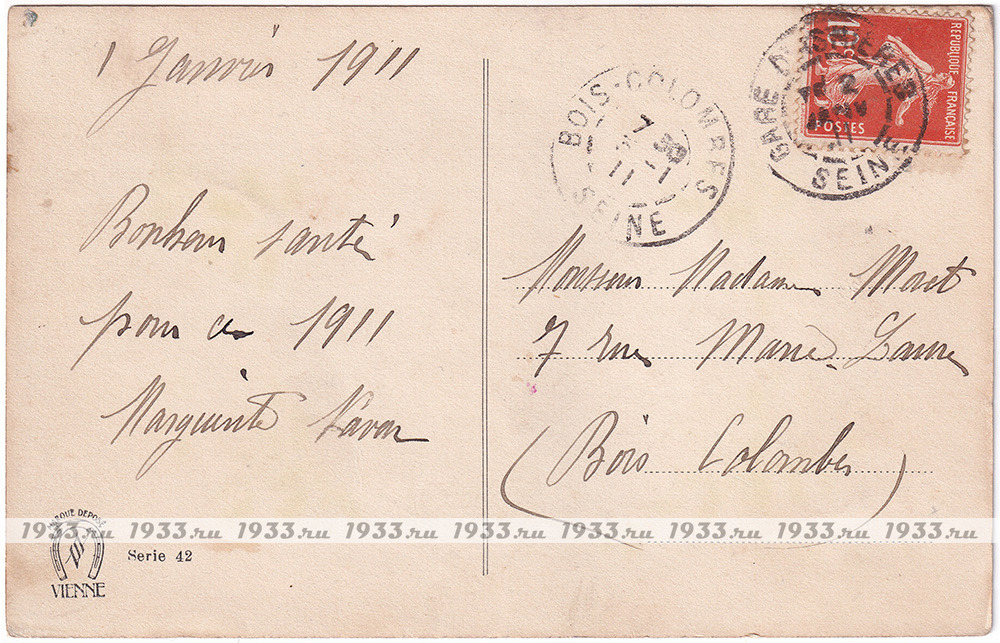 1 Janvier 1911
Bonheur santé
pour ce 1911
Marguerite
BOIS-COLOMBES
7 30
-1
11
SEINE
GARE D'ASNIERES
2
11
SEINE
REPUBLIQUE FRANÇAISE
10c
POSTES
Monsieur Madame Moret
7 rue Marie Laure
(Bois Colombes)
MARQUE DEPOSÉ
VIENNE
Serie 42
1933.ru 1933.ru 1933.ru 1933.ru 1933.ru 1933.ru 1933.ru 1933.ru 1933.ru